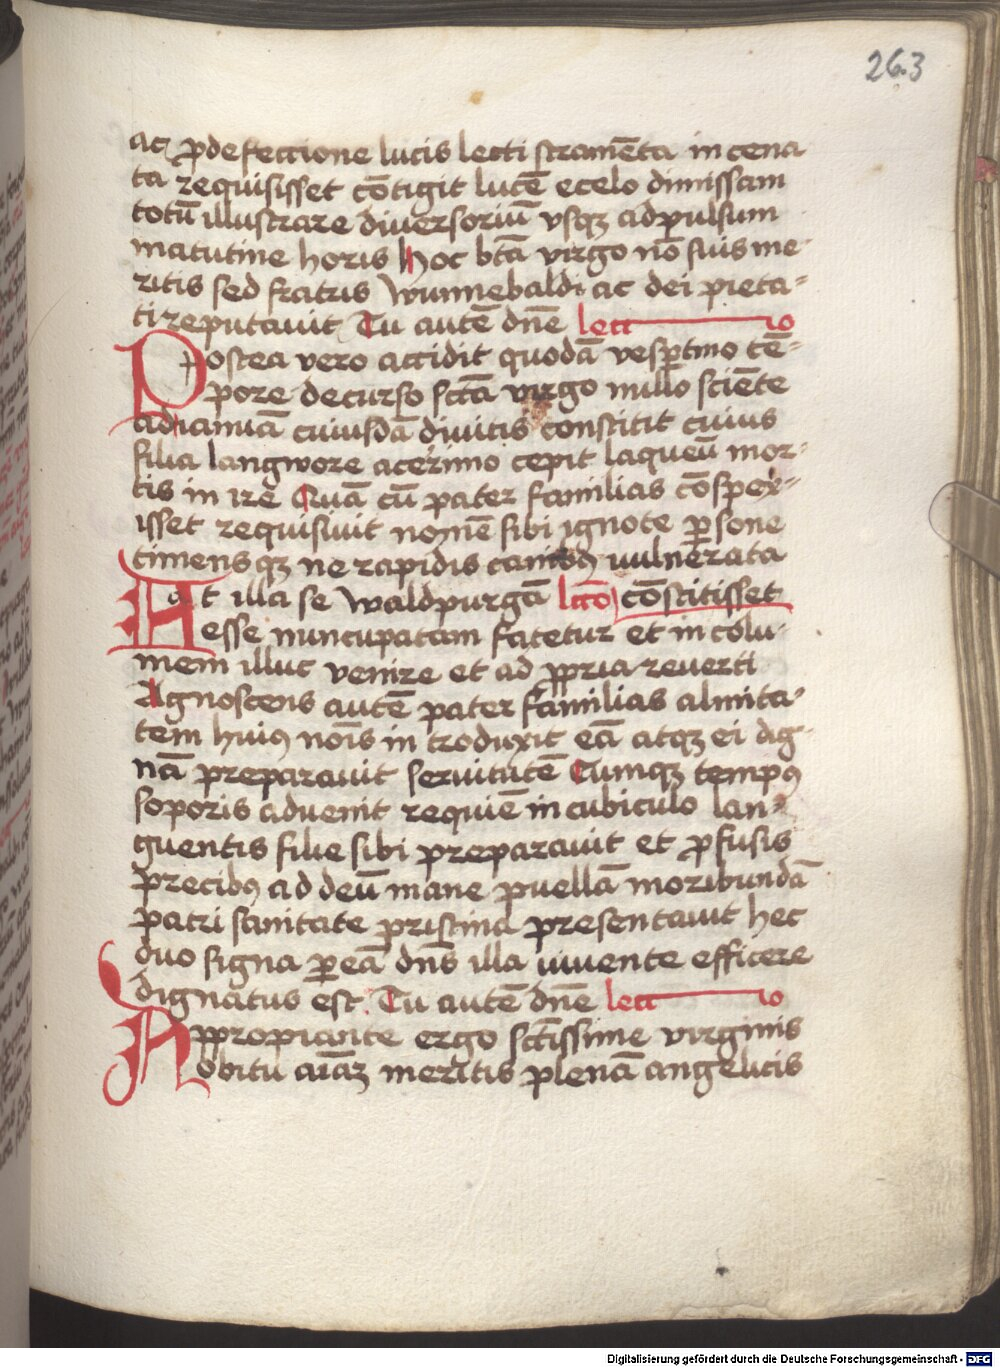 263
ac p̄defectione lucis lecti stramēta in cena
ta requisisset cōtigit lucē ecelo dimissam
totū illustrare diuersoriū vsqꝫ adpulsum
matutine horis Hoc btā virgo nō suis me-
ritis sed fratris wunnebaldi ac dei pieta-
ti reputauit Tu autē dn̄e lectio
Postea vero accidit quodā vesp̱tino tē-
pore decurso sctā virgo nullo sciente
adianuā cuiusdā diuitis constitit cuius
filia langwore acerimo cepit laqueū mor-
tis in ire Quā cū pater familias cōspex-
isset requisiuit nomē sibi ignote p̱sone
timens qꝫ ne rapidis canibꝰ uulnerata
At illa se waldpurgā lcc̄o cōstitisset
esse nuncupatam fatetur et in colu-
mem illuc venire et ad pp̱ria reuerti
Agnoscens autē pater familias almita-
tem huiꝰ nōis in troduxit eā atqꝫ ei dig-
nā preparauit seruitutē Cumqꝫ tempꝰ
soporis aduenit requiē in cubiculo lan-
guentis filie sibi preparauit et ꝓfusis
precibꝰ ad deū mane puellā moribundā
patri sanitate pristina presentauit hec
duo signa p̱eā dn̄s illa viuente efficere
dignatus est. Tu autē dn̄e lectio
Appropicante ergo sctīssime virginis
obitu aīaꝫ meritis plenā angelicis
Digitalisierung gefördert durch die Deutsche Forschungsgemeinschaft - DFG